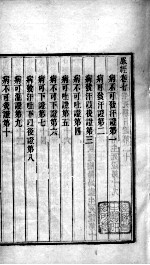 脈經卷七
病不可發汗證第一
病可發汗證第二
病發汗以後證第三
病不可吐證第四
病可吐證第五
病不可下證第六
病可下證第七
病發汗吐下以後證第八
病可溫證第九
病不可灸證第十